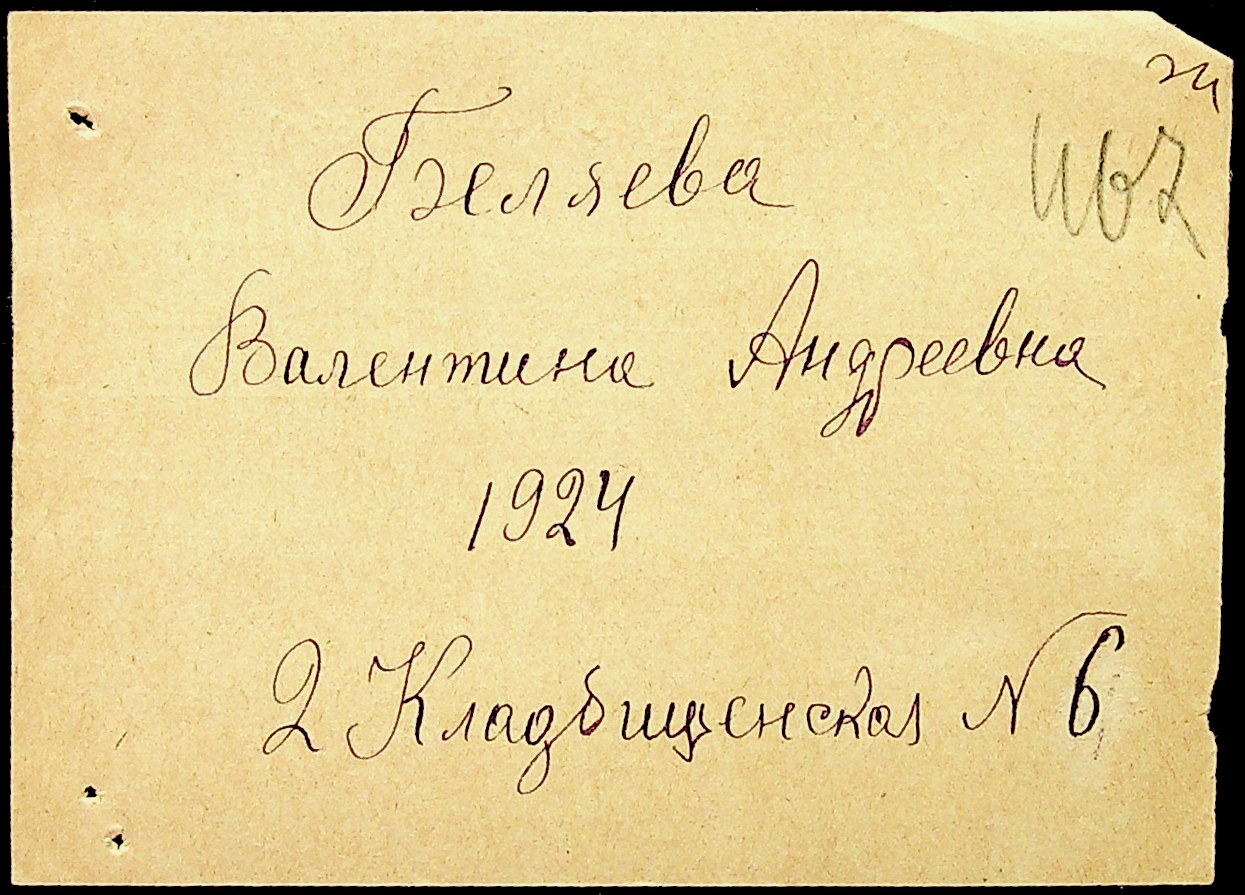 Беляева
Валентина Андреевна
1924
2 Кладбищенская N 6